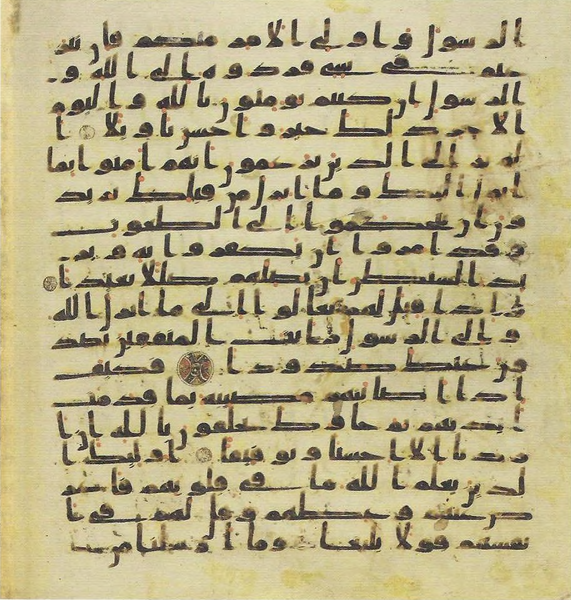 الرسول واولى الامر منكم فان تنز
عتم فى شى فردوه الى الله و
الرسول ان كنتم تومنون بالله واليوم
الاخر ذلك خير واحسن تاويلا ا
لم تر الى الذين يزعمون انهم امنوا بما
انزل اليك وما انزل من قبلك يريد
ون ان يتحاكموا الى الطغوت
وقد امروا ان يكفروا به وير
يد الشيطن ان يضلهم ضللا بعيدا
واذا قيل لهم تعالوا الى ما انزل الله
والى الرسول رايت المنفقين يصد
ون عنك صدودا فكيف
اذا اصابتهم مصيبه بما قدمت
ايديهم ثم جاوك يحلفون بالله ان ا
ردنا الا احسنا وتوفيقا اوليك ا
لذين يعلم الله ما فى قلوبهم فاعر
ض عنهم وعظهم وقل لهم فى ا
نفسهم قولا بليغا وما ارسلنا من